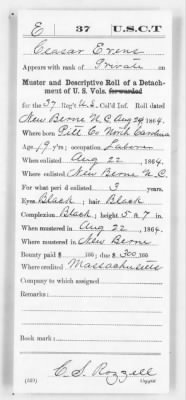 E 37 U.S.C.T
Ceasar Evens
Appears with rank of Private on
Muster and Descriptive Roll of a Detach-
ment of U. S. Vols. forwarded
for the 37 Reg't U.S. Col'd Inf. Roll dated
New Berne N C Aug 29, 1864.
Where born Pitt Co North Carolina
Age 19 y'rs; occupation Laborer
When enlisted Aug 22, 1864.
Where enlisted New Berne N.C.
For what period enlisted 3 years.
Eyes Black; hair Black
Complexion Black; height 5 ft. 7 in.
When mustered in Aug 22, 1864.
Where mustered in New Berne
Bounty paid $ 100; due $ 300 100
Where credited Massachusetts
Company to which assigned
Remarks:
Book mark:
C. S. Rozzell
Copyist.